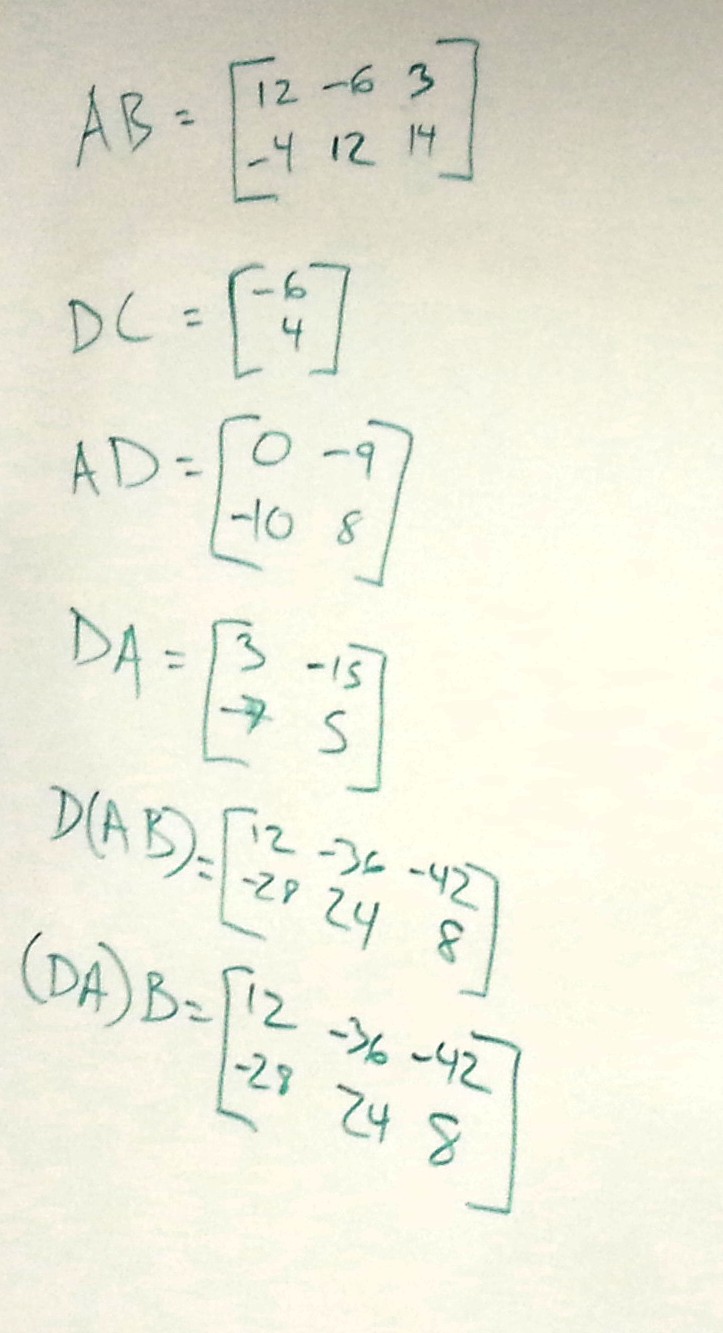 AB = [12 -6 3
-4 12 14]
DC = [-6
4]
AD = [0 -9
-10 8]
DA = [3 -15
-7 5]
D(AB) = [12 -36 -42
-28 24 8]
(DA)B = [12 -36 -42
-28 24 8]